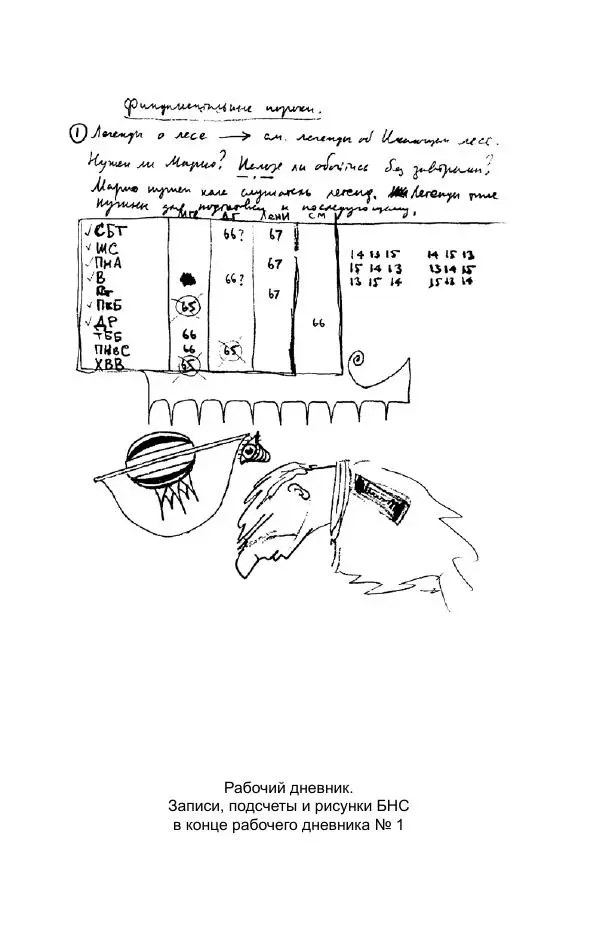 Фундаментальные пороки.
① Легенды о лесе → см. легенды об Икающем лесе.
Нужен ли Марио? Нельзя ли обойтись без завтраками?
Марио нужен как слушатель легенд. Легенды тоже
нужны для подготовки к последующему.
МГГ ДГ Лени СМ
✓ СБТ 66? 67
✓ ШС
✓ ПнА 67
✓ В 66?
67
✓ ПкБ 65
✓ ДР 66
ТББ 66
ПНвС 66 65
ХВВ 65
14 13 15 14 15 13
15 14 13 13 14 15
13 15 14 15 13 14
Рабочий дневник.
Записи, подсчеты и рисунки БНС
в конце рабочего дневника № 1